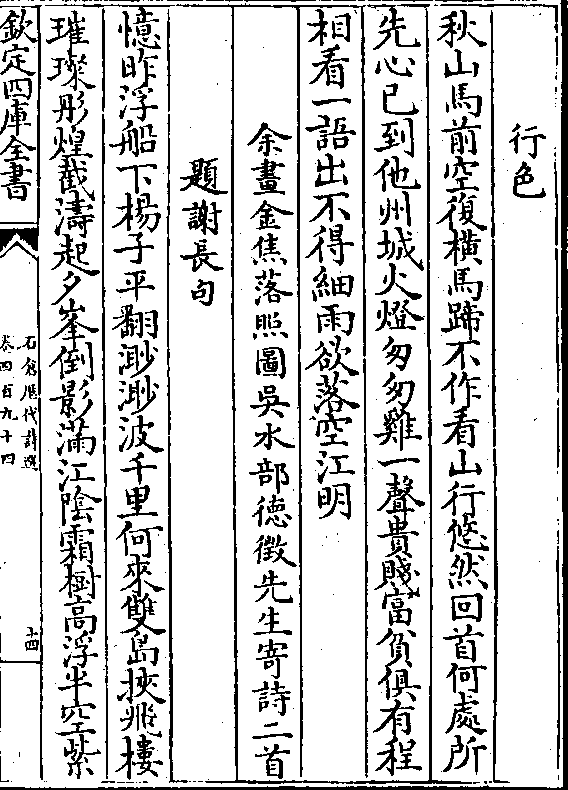 行色
秋山馬前空復橫馬蹄不作看山行悠然回首何處所
先心已到他州城火燈匆匆雞一聲貴賤富貧俱有程
相看一語出不得細雨欲落空江明
余畫金焦落照圖吳水部德徵先生寄詩二首
題謝長句
憶昨浮船下楊子平翻渺渺波千里何來雙島挾飛樓
璀璨彤煌截濤起夕峯倒影滿江陰霜樹高浮半空紫
欽定四庫全書
石倉歷代詩選
卷四百九十四
十四